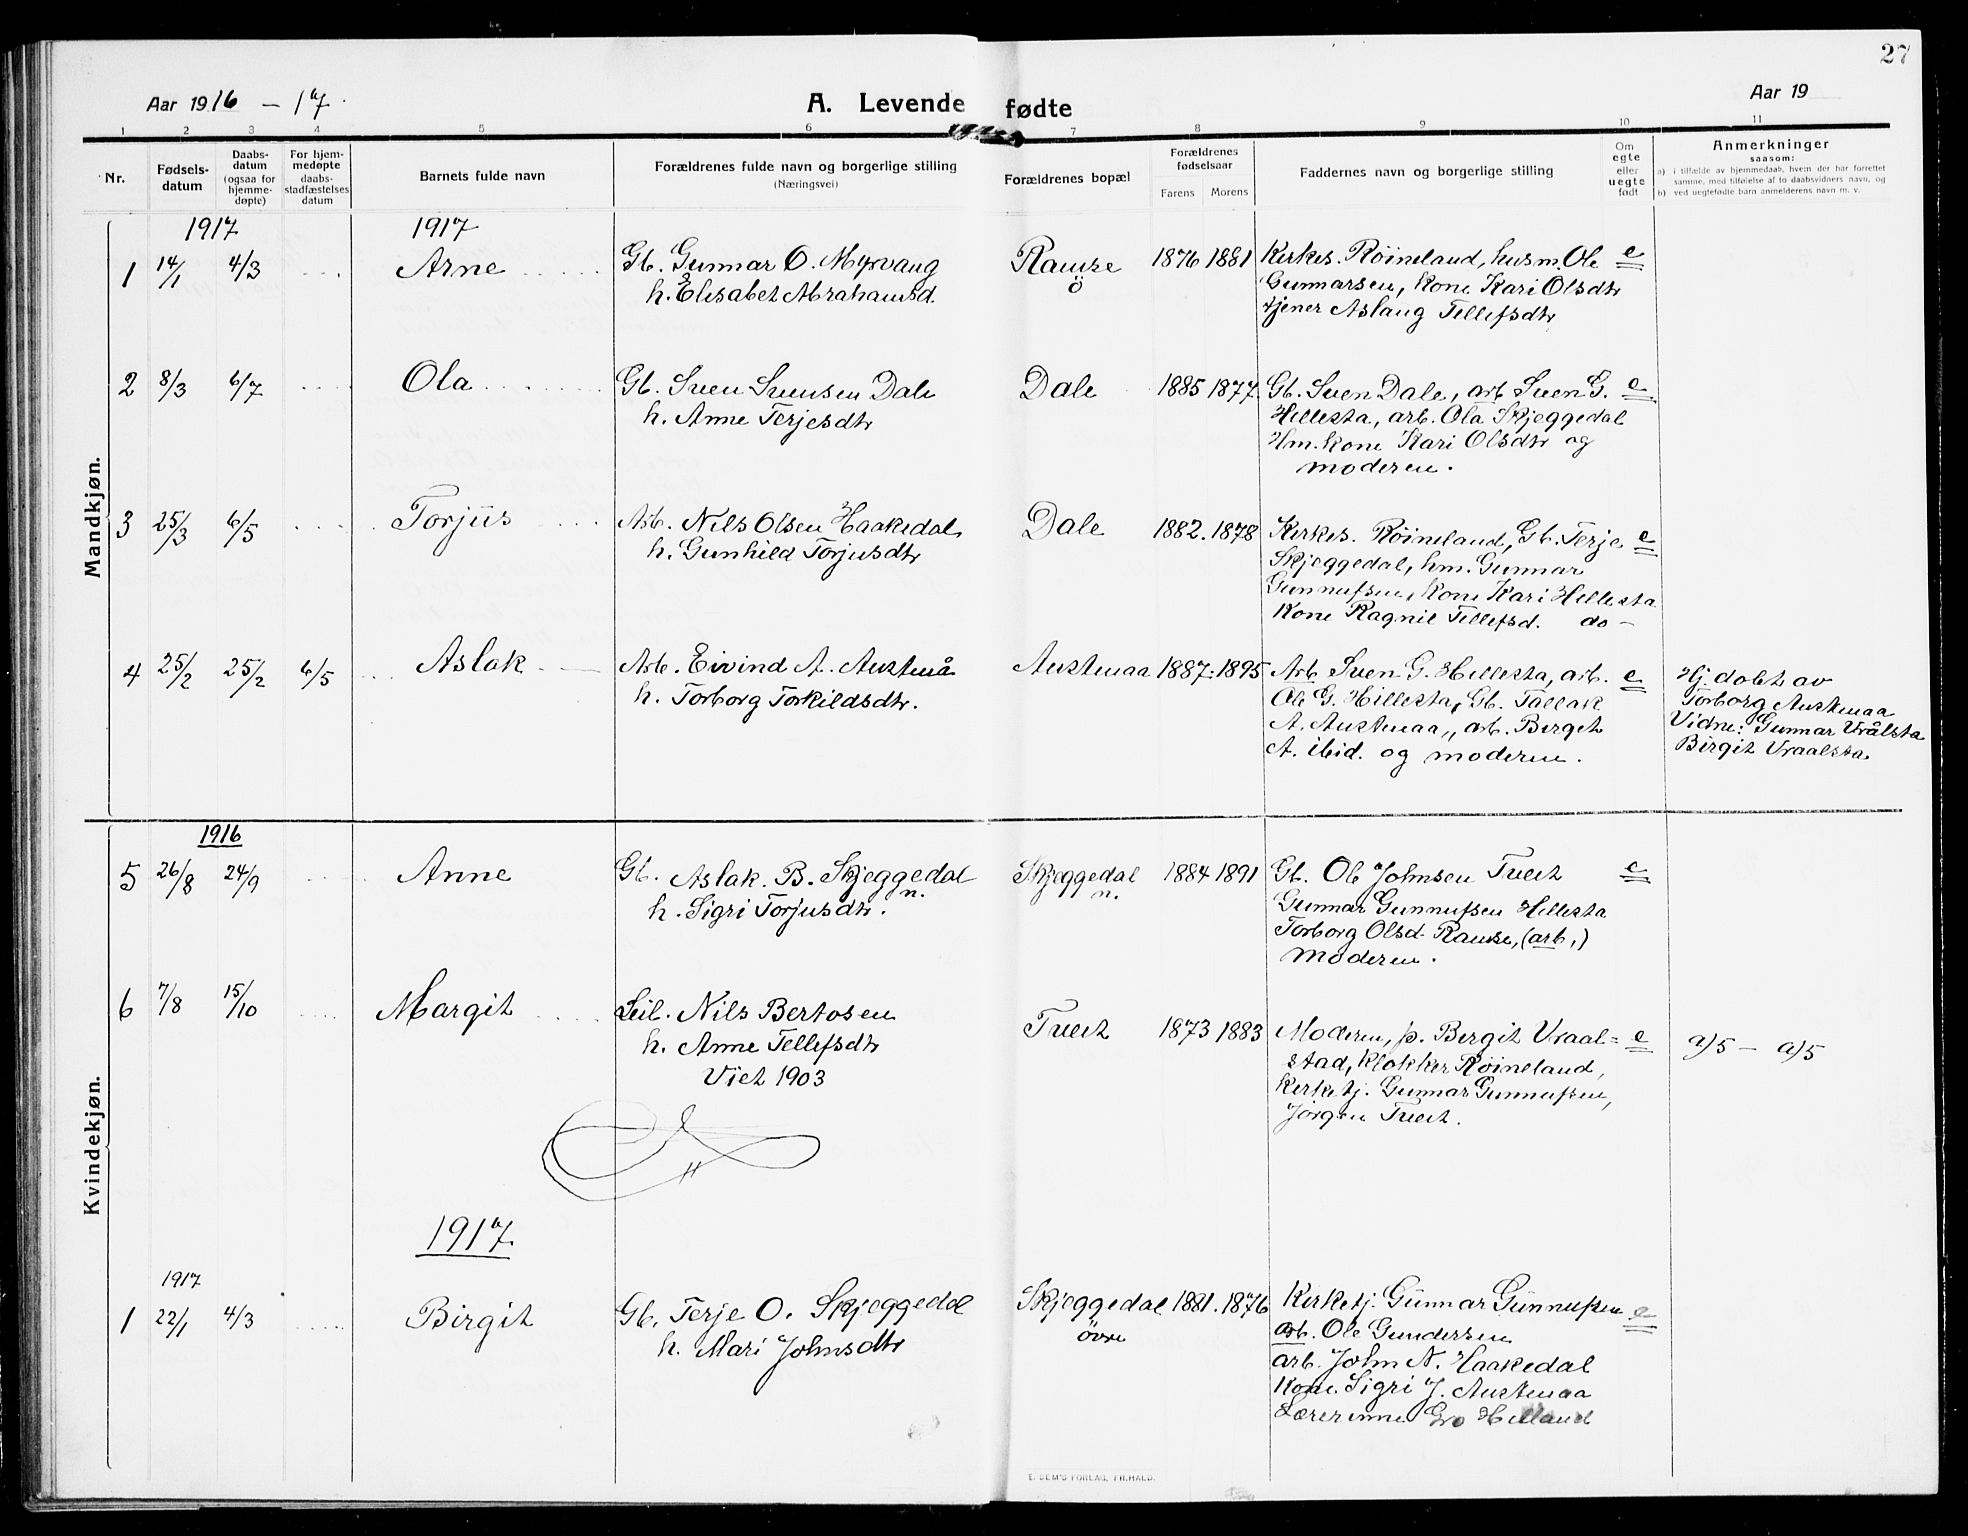 27
Aar 1916 – 17.
A. Levende fødte
Aar 19
1 2 3 4 5 6 7 8 9 10 11
Nr.
Fødsels-
datum
Daabs-
datum
(ogsaa for
hjemme-
døpte)
For hjem-
medøpte
daabs-
stadfæstelses
datum
Barnets fulde navn
Forældrenes fulde navn og borgerlige stilling
(Næringsvei)
Forældrenes bopæl
Forældrenes
fødselsaar
Farens Morens
Faddernes navn og borgerlige stilling
Om
egte
eller
uegte
født
Anmerkninger
saasom:
a) i tilfælde av hjemmedaab, hvem der har forrettet
samme, med tilføielse af to daabsvidners navn, og
b) ved uegtefødte barn anmelderens navn m. v.
Mandkjøn.
1917 1917
1 14/1 4/3 Arne Gb. Gunnar O. Myrvang Ramse 1876 1881 Kirkes. Røineland, husm. Ole e
h. Elisabet Abrahamsd. ö Gunnarsen, Kone Kari Olsdtr
tjener Aslaug Tellefsdtr
2 8/3 6/7 Ola Gb. Sven Svensen Dale Dale 1885 1877. Gb. Sven Dale, arb Sven G. e
h. Anne Terjesdtr Hillesta, arb. Ola Skjeggedal
Hm. kone Kari Olsdtr og
moderen.
3 25/3 6/5 Torjus Arb. Nils Olsen Haakedal Dale 1882. 1878 Kirkes. Røineland, Gb. Terje e
h. Gunhild Torjusdtr Skjeggedal, hm. Gunnar
Gunnufsen, Kone Kari Hillesta
Kone Ragnil Tellefsd. do –
4 25/2 25/2 6/5 Aslak Arb. Eivind A. Austmå Austmaa 1887. 1895 Arb Sven G. Hillesta, arb. e Hj. døbt av
h. Torborg Torkildsdtr. Ole G. Hillesta, Gb. Tallak Torborg Austmaa
A. Austmaa,, arb. Birgit Vidne: Gunnar Vrålsta
A. ibid. og moderen. Birgit Vraalsta
Kvindekjøn.
1916
5 26/8 24/9 Anne Gb. Aslak. B. Skjeggedal Skjeggedal 1884 1891 Gb. Ole Johnsen Tveit e
n. n.
h. Sigri Torjusdtr. Gunnar Gunnufsen Hillesta
Torborg Olsd. Ramse, (arb,)
Moderen.
6 7/8 15/10 Margit Leil. Nils Bertosen Tveit 1873 1883 Moderen, p. Bergit Vraal= e a)5 – a)5
h. Anne Tellefsdtr stad, klokker Røineland,
Viet 1903 Kirketj. Gunnar Gunnufsen,
Jörgen Tveit.
1917.
1917
1 22/1 4/3 Birgit Gb. Terje O. Skjeggedal Skjeggedal 1881. 1876 Kirketj. Gunnar Gunnufsen e
h. Mari Johnsdtr övre arb. Ole Gundersen
arb. John N. Haakedal
Kone Sigri J. Austmaa
Lærerinne Gro Helland
E. SEM'S FORLAG, FR.HALD.